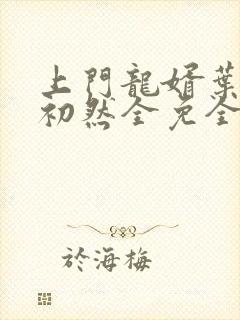 上門龍婿葉
初然全免全
於海梅